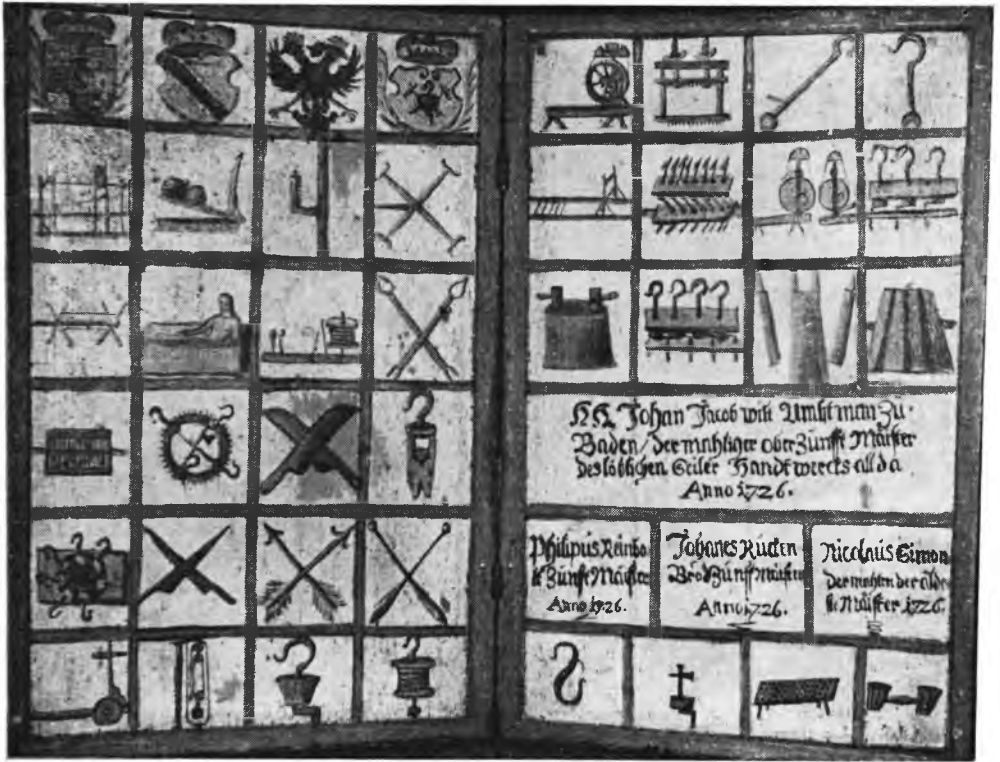 HH. Johan Jacob will Ambtman Zu
Baden / der mahliger ober Zunfft Maister
des löblichen Seiler Handtwercks all da
Anno 1726.
Philipus Reinbo
Zunfft Maister
Anno 1726.
Johanes Rucken
Bro Zunfft maister
Anno 1726.
Nicolaus Simon
Der mahlen der
Maister 1726